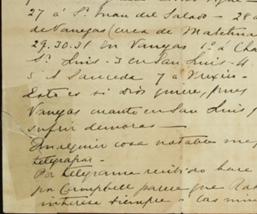 27 á Sn Juan del Salado - 28 a
de Vanegas (cerca de Matehua
29.30.31 en Vanegas 1º á Cha
Sn Luis - 3 en San Luis - 4
5 á Sauceda 7 á Mexico -
Esto es si Dios quiere, pues
Vanegas cuanto en San Luis,
sufrir demoras
En alguna cosa notable me
telegrafías -
Por telegrama recibido hace
por Campbell parece que
interese siempre a las min